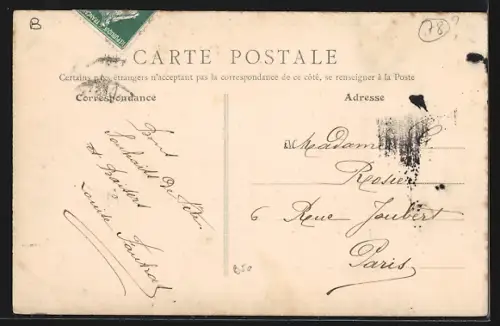 B
78
RÉPUBLIQUE FRANÇAISE
CARTE POSTALE
Certains pays étrangers n'acceptant pas la correspondance de ce côté, se renseigner à la Poste
Correspondance
Adresse
Bons
Souhaits de fête
et Baisers
Louise
Madame
Rosier
6 Rue Joubert
Paris